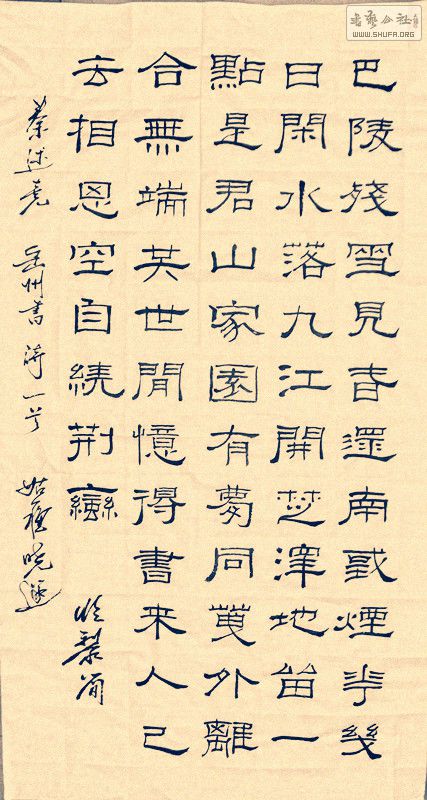 巴陵殘雪見春還南或煙華幾
日閑水落九江開楚澤地留一
點是君山家園有夢同萸外離
合無端其世間憶得書来人已
去相恩空自繞荊蠻
蔡述堯 岳州書 一首 姑蘇
書藝公社
WWW.SHUFA.ORG